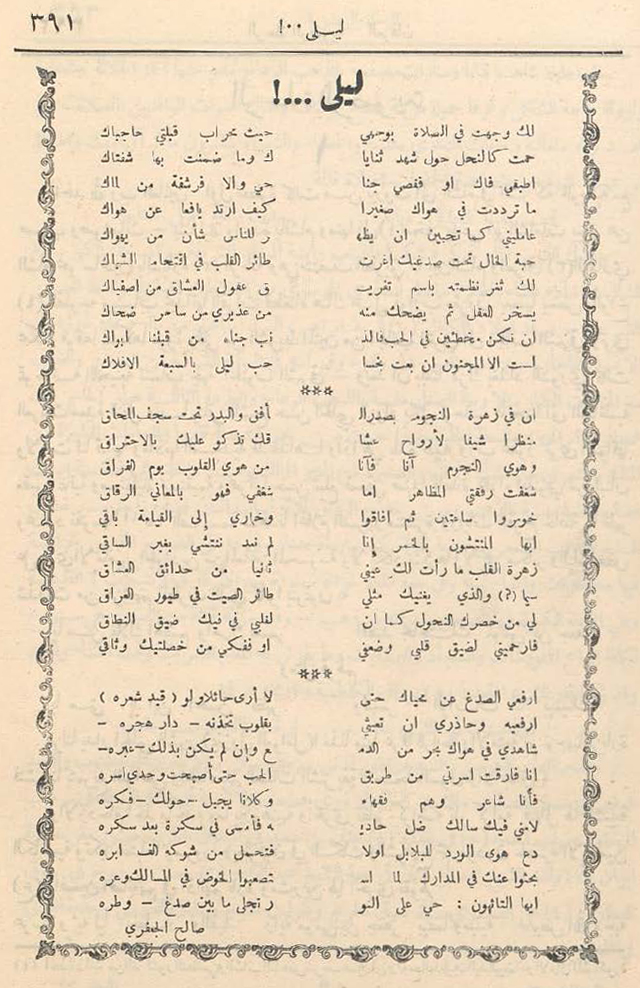 ٣٩١
ليلى ٠٠٠!
ليلى ...!
لك وجهت في السلاة بوجهي حيث محراب قبلتي حاجباك
حمت كالنحل حول شهد ثنايا ك وما ضمنت بها شفتاك
اطبقي فاك او فقصي جنا حي والا فرشفة من لماك
ما ترددت في هواك صغيرا كيف ارتد يافعا عن هواك
عامليني كما تحبين ان يظه ر للناس شأن من يهواك
حبة الخال تحت صدغيك اغرت طائر القلب في اقتحام الشباك
لك ثغر نظمته باسم تفريـ ق عقول العشاق من اصفياك
يسخر العقل ثم يضحك منه من عذيري من ساحر ضحاك
ان نكن مخطئين في الحب فالذ نب جناه من قبلنا ابواك
لست الا المجنون ان بعت بخسا حب ليلى بالسبعة الافلاك
***
ان في زهرة النجوم بصدر الـ أفق والبدر تحت سجف المحاق
منظرا شيقا لأرواح عشا قك تذكو عليك بالاحتراق
وهوي النجوم آنا فآنا من هوي القلوب يوم الفراق
شغفت رفقتي المظاهر اما شغفي فهو بالمعاني الرقاق
خمروا ساعتين ثم افاقوا وخماري إلى القيامة باقي
ايها المنتشون بالخمر إنا لم نعد ننتشي بغير الساقي
زهرة القلب ما رأت لك عيني ثانيا من حدائق العشاق
سيا (?) والذي يغنيك مثلي طائر الصيت في طيور العراق
لي من خصرك النحول كما ان لقلبي في فيك ضيق النطاق
فارحميني لضيق قلبي وضعفي او ففكي من خصلتيك وثاقي
***
ارفعي الصدغ عن محياك حتى لا أرى حائلا ولو ( قيد شعره )
ارفعيه وحاذري ان تعبثي بقلوب تخذنه – دار هجره –
شاهدي في هواك بحر من الدمـ ع وإن لم يكن بذلك – عبره –
انا فارقت اسرتي من طريق الحب حتى أصبحت وحدي اسره
فأنا شاعر وهم فقهاء وكلانا يجيل – حولك – فكره
لامني فيك سالك ضل حاديـ ه فأمسى في سكرة بعد سكره
دع هوى الورد للبلابل اولا فتحمل من شوكه الف ابره
بحثوا عنك في المدارك لما استصعبوا الخوض في المسالك وعره
ايها التائهون : حي على النو ر تجلى ما بين صدغ – وطره
صالح الجعفري